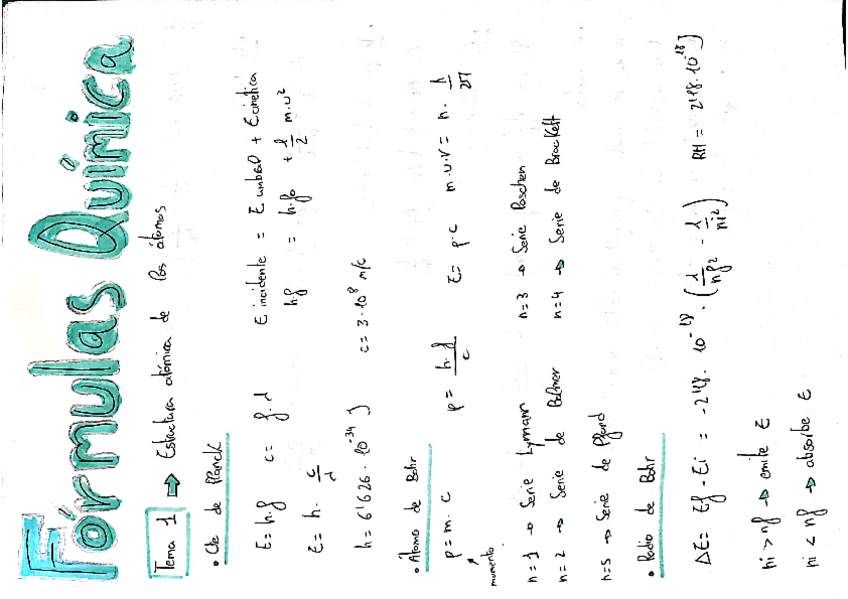 Fórmulas Química
Tema 1 ⇒ Estructura atómica de los átomos
• Cte de Planck
E = h·f    c = f·λ    E incidente = E umbral + E cinética
E = h· c/λ    h·f = h·f₀ + 1/2 m·v²
h = 6'626 · 10⁻³⁴ J    c = 3·10⁸ m/c
• Átomo de Bohr
p = m·c    p = h·f/c    E = p·c    m·v·r = n· h/2π
momento
n=1 → Serie Lymann    n=3 → Serie Paschen
n=2 → Serie de Balmer    n=4 → Serie de Brackett
n=5 → Serie de Pfund
• Radio de Bohr
ΔE = Ef - Ei = -2'18 · 10⁻¹⁸ · (1/nf² - 1/ni²)    RH = 2'18·10⁻¹⁸ J
ni > nf → emite E
ni < nf → absorbe E